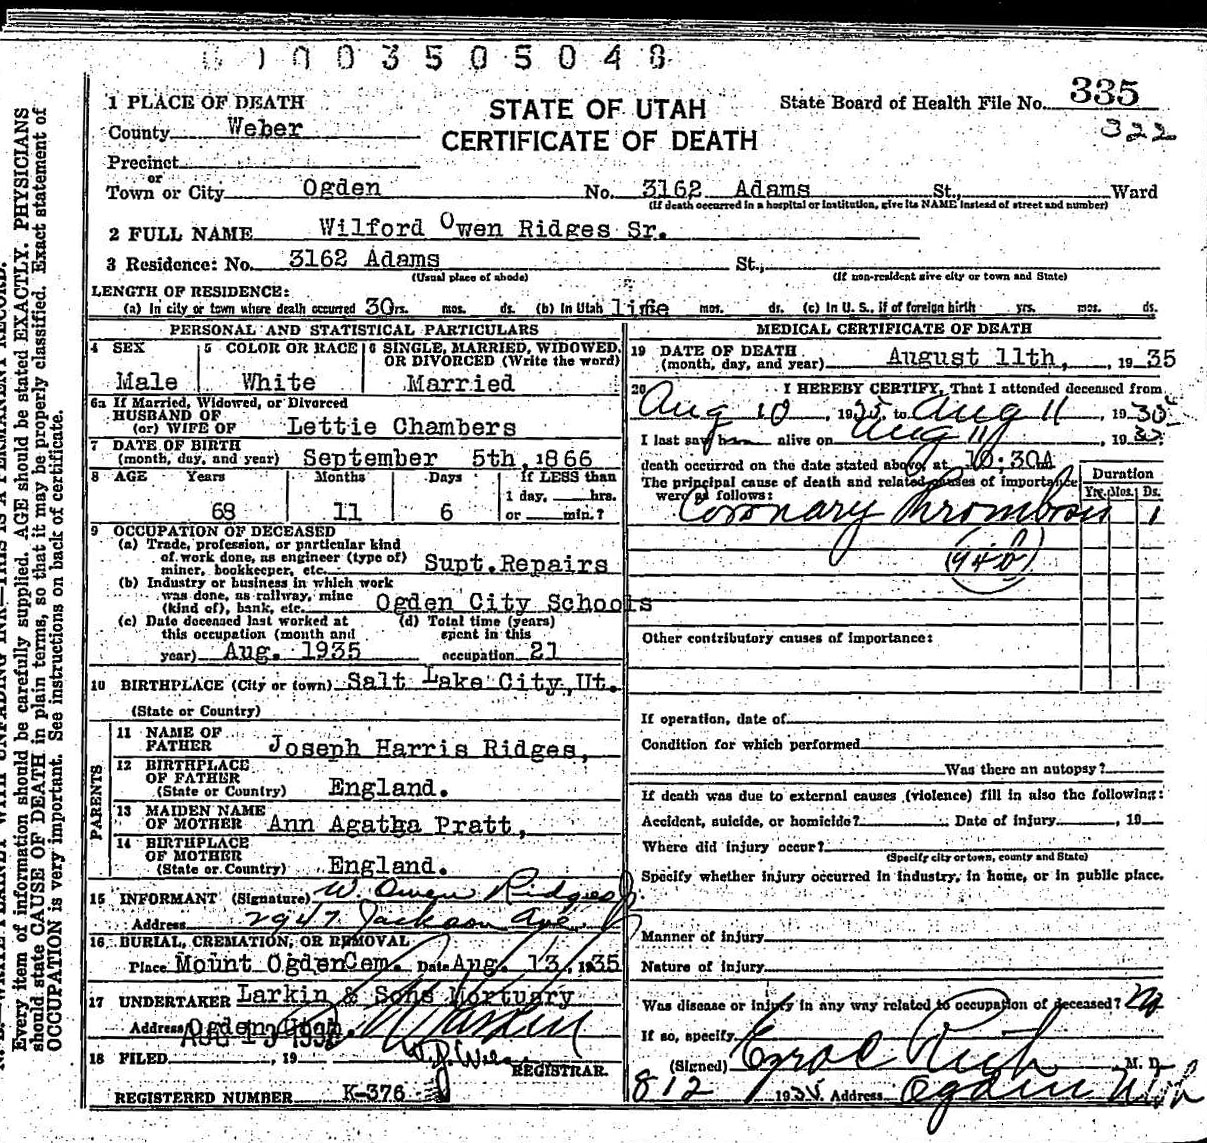 1003505048
1 PLACE OF DEATH
STATE OF UTAH
CERTIFICATE OF DEATH
State Board of Health File No. 335
322
County Weber
Precinct
or
Town or City Ogden No. 3162 Adams St., Ward
(If death occurred in a hospital or institution, give its NAME instead of street and number)
2 FULL NAME Wilford Owen Ridges Sr.
3 Residence: No. 3162 Adams St.,
(Usual place of abode) (If non-resident give city or town and State)
LENGTH OF RESIDENCE:
(a) In city or town where death occurred 30 yrs. mos. ds. (b) In Utah life mos. ds. (c) In U. S., if of foreign birth yrs. mos. ds.
PERSONAL AND STATISTICAL PARTICULARS
4 SEX
Male
5 COLOR OR RACE
White
6 SINGLE, MARRIED, WIDOWED, OR DIVORCED (Write the word)
Married
6a If Married, Widowed, or Divorced
HUSBAND OF
(or) WIFE OF Lettie Chambers
7 DATE OF BIRTH
(month, day, and year) September 5th, 1866
8 AGE Years Months Days If LESS than
1 day, hrs.
68 11 6 or min.?
9 OCCUPATION OF DECEASED
(a) Trade, profession, or particular kind
of work done, as engineer (type of)
miner, bookkeeper, etc. Supt. Repairs
(b) Industry or business in which work
was done, as railway, mine
(kind of), bank, etc. Ogden City Schools
(c) Date deceased last worked at
this occupation (month and
year) Aug. 1935
(d) Total time (years)
spent in this
occupation 21
10 BIRTHPLACE (City or town) Salt Lake City, Ut.
(State or Country)
PARENTS
11 NAME OF
FATHER Joseph Harris Ridges,
12 BIRTHPLACE
OF FATHER
(State or Country) England.
13 MAIDEN NAME
OF MOTHER Ann Agatha Pratt,
14 BIRTHPLACE
OF MOTHER
(State or Country) England.
15 INFORMANT (Signature) W. Owen Ridges Jr.
Address 2947 Jackson Ave.
16 BURIAL, CREMATION, OR REMOVAL
Place Mount Ogden Cem. Date Aug. 13, 1935
17 UNDERTAKER Larkin & Sons Mortuary
Address Ogden Utah.
18 FILED, 19
REGISTRAR.
REGISTERED NUMBER K-376
MEDICAL CERTIFICATE OF DEATH
19 DATE OF DEATH
(month, day, and year) August 11th, 1935
20 I HEREBY CERTIFY, That I attended deceased from
Aug 10, 1935, to Aug 11, 1935
I last saw him alive on Aug 11, 1935
death occurred on the date stated above, at 10:30A m.
The principal cause of death and related causes of importance
were as follows:
Duration
Yrs. Mos. Ds.
Coronary Thrombosis 1
(94b)
Other contributory causes of importance:
If operation, date of
Condition for which performed
Was there an autopsy?
If death was due to external causes (violence) fill in also the following:
Accident, suicide, or homicide? Date of injury, 19
Where did injury occur?
(Specify city or town, county and State)
Specify whether injury occurred in industry, in home, or in public place.
Manner of injury
Nature of injury
Was disease or injury in any way related to occupation of deceased? No
If so, specify
(Signed) Ezra C Rich M. D.
8 12 1935 Address Ogden Utah
Every item of information should be carefully supplied. AGE should be stated EXACTLY. PHYSICIANS
should state CAUSE OF DEATH in plain terms, so that it may be properly classified. Exact statement of
OCCUPATION is very important. See instructions on back of certificate.